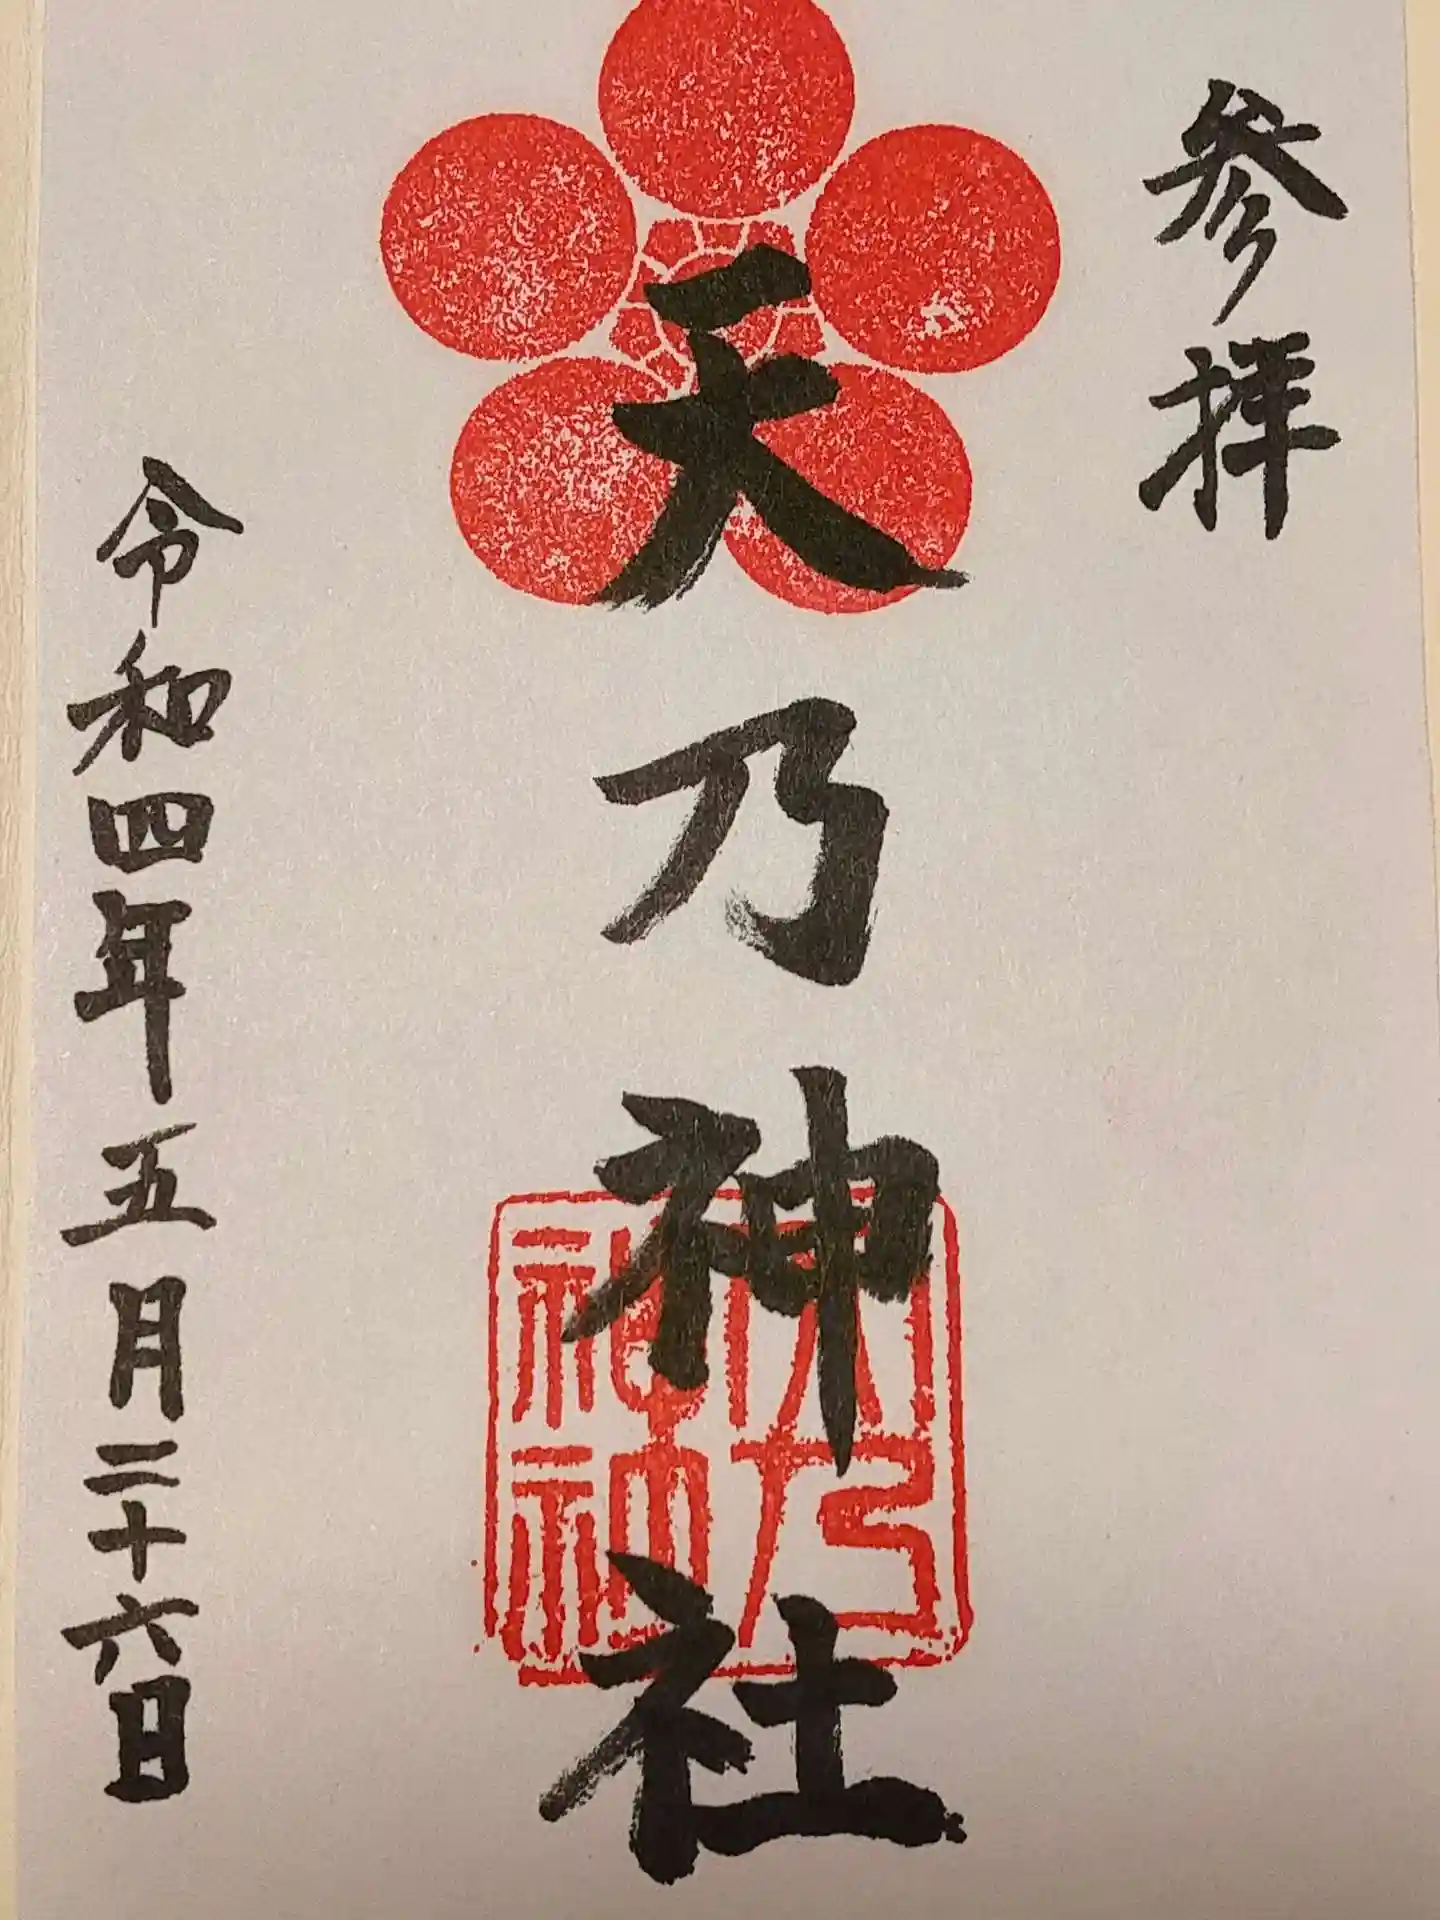 参拝
天乃神社
令和四年五月二十六日